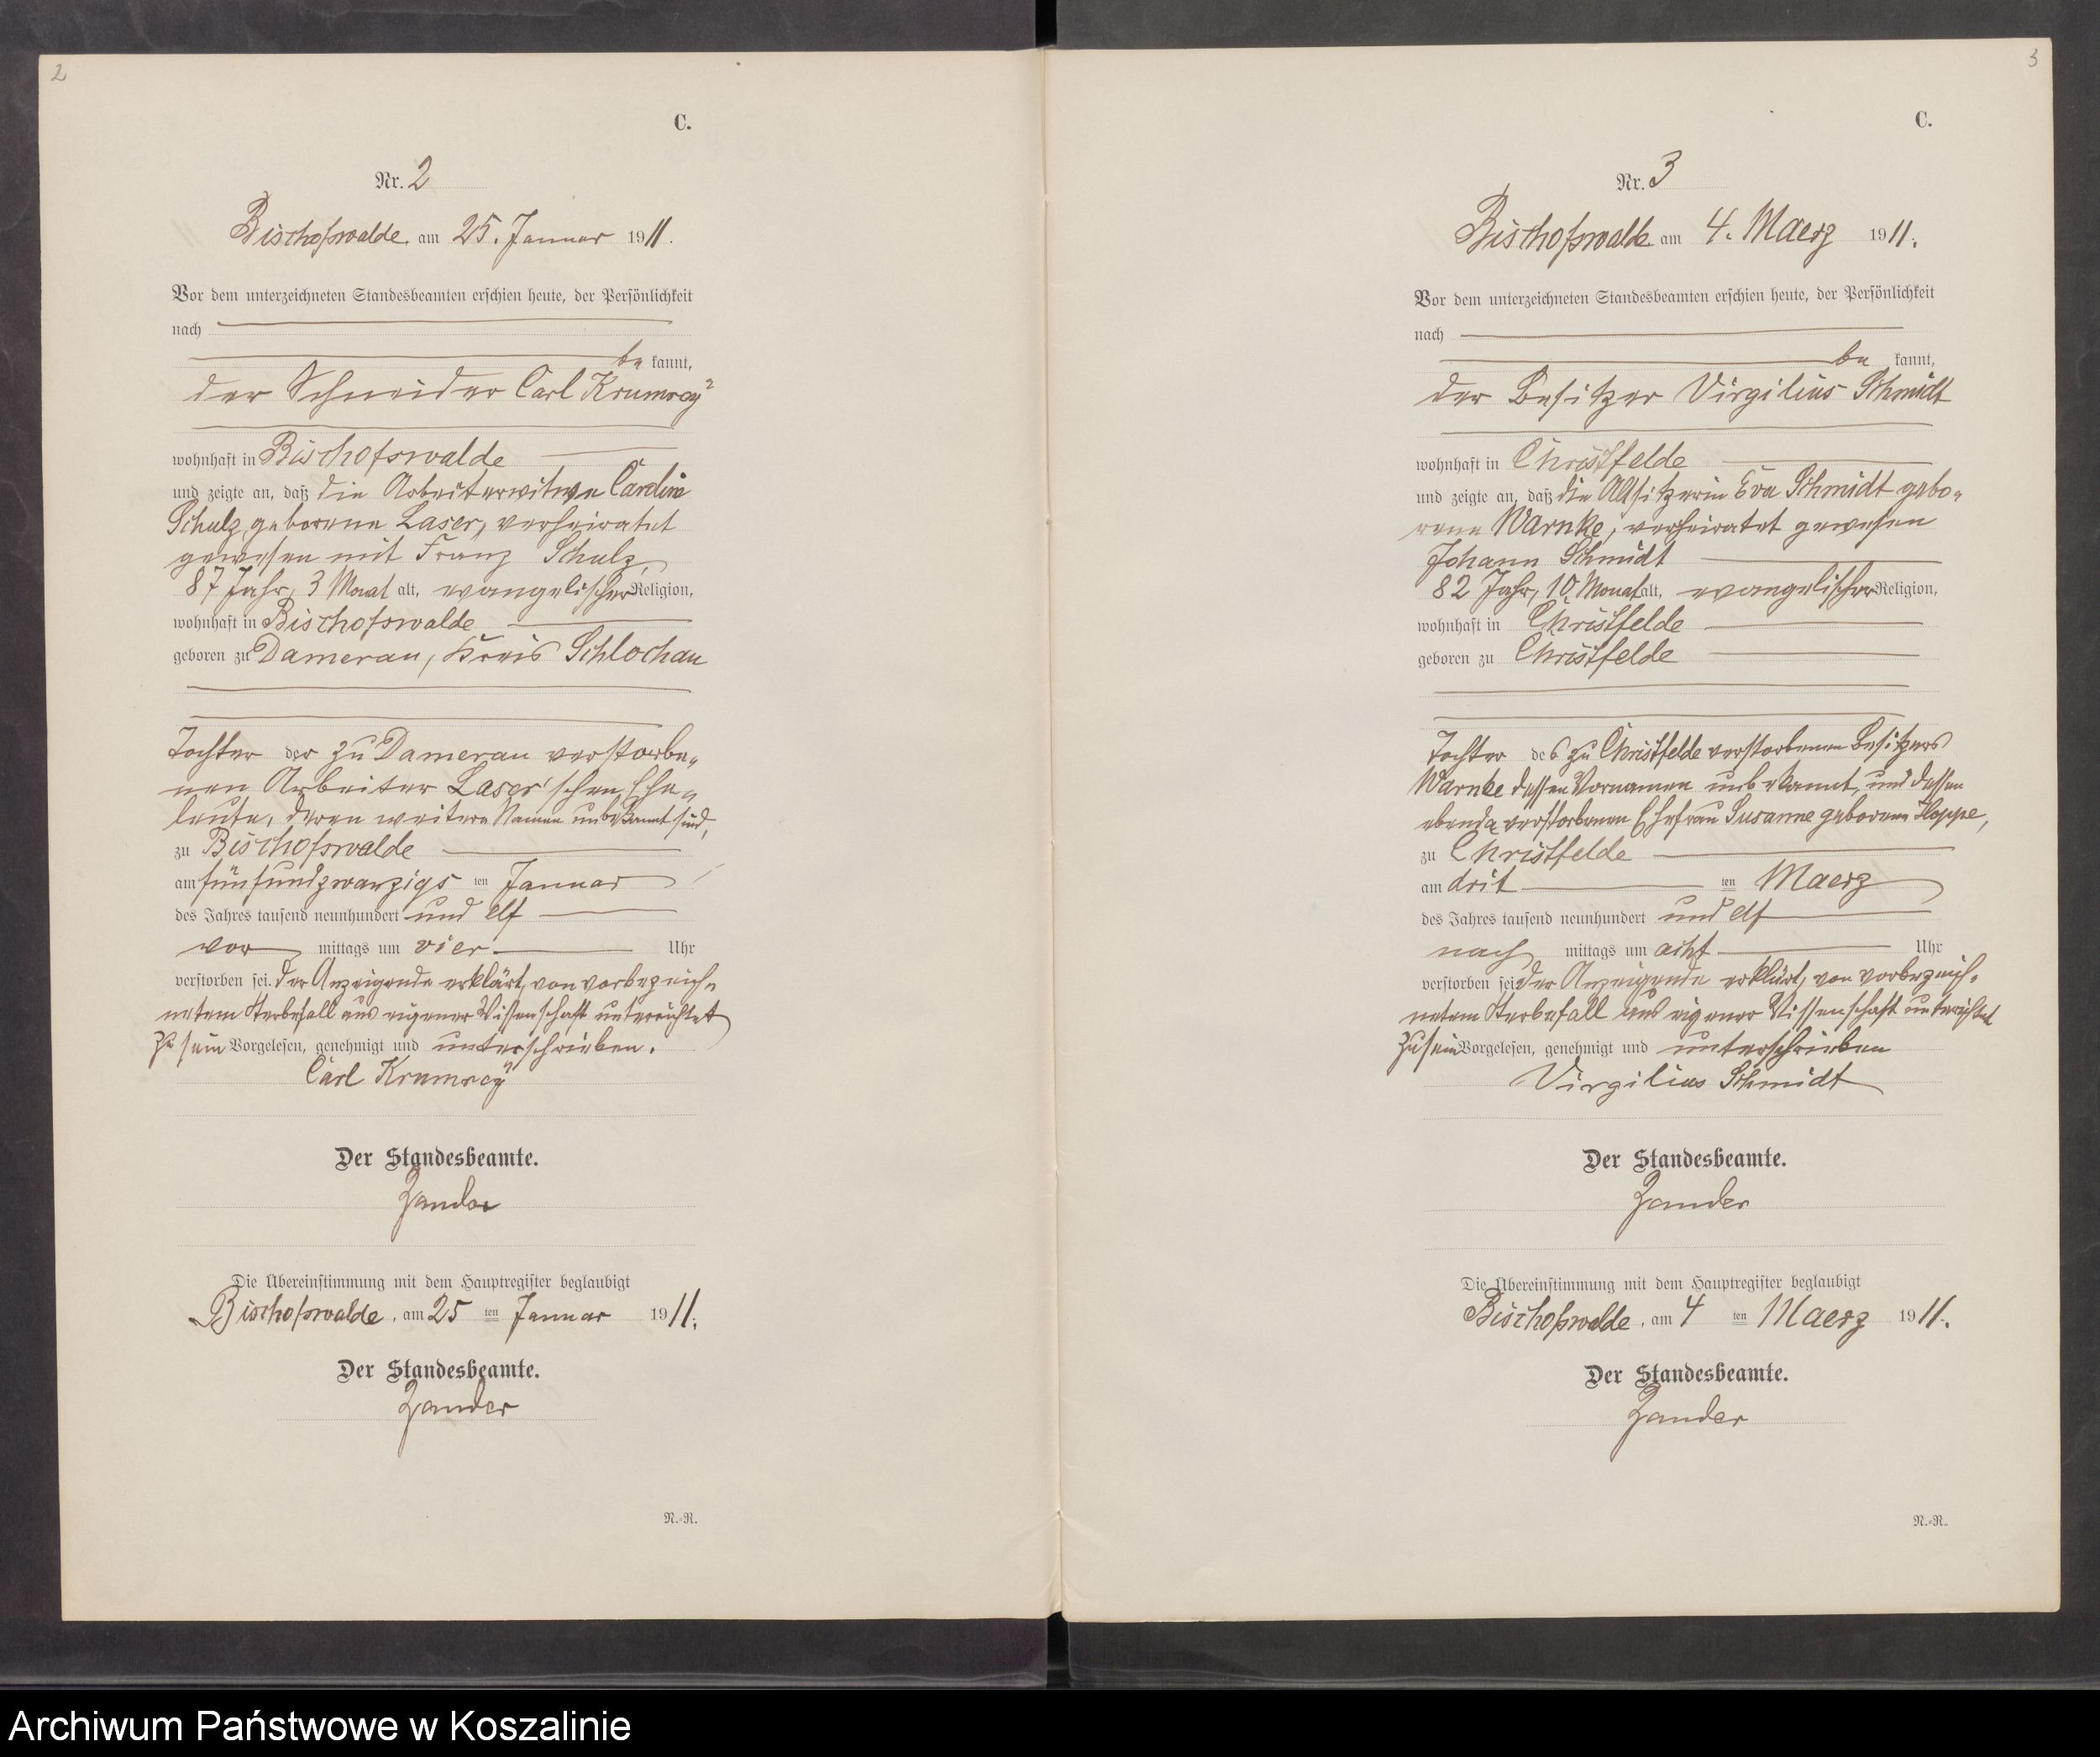 2
C.
Nr. 2
Bischofswalde am 25. Januar 1911.
Vor dem unterzeichneten Standesbeamten erschien heute, der Persönlichkeit
nach
be kannt,
der Schneider Carl Krumrey
wohnhaft in Bischofswalde
und zeigte an, daß die Arbeiterwitwe Caroline
Schulz geborene Laser, verheiratet
gewesen mit Franz Schulz,
87 Jahr, 3 Monat alt, evangelischer Religion,
wohnhaft in Bischofswalde
geboren zu Damerau, Kreis Schlochau
Tochter der zu Damerau verstorbe-
nen Arbeiter Laser'schen Ehe-
leute, deren weitere Namen unbekannt sind,
zu Bischofswalde
am fünfundzwanzigs ten Januar
des Jahres tausend neunhundert und elf
vor mittags um vier Uhr
verstorben sei. Der Anzeigende erklärt, von vorbezeich-
netem Sterbefall aus eigener Wissenschaft unterrichtet
zu sein Vorgelesen, genehmigt und unterschrieben.
Carl Krumrey
Der Standesbeamte.
Zander
Die Übereinstimmung mit dem Hauptregister beglaubigt
Bischofswalde, am 25 ten Januar 1911.
Der Standesbeamte.
Zander
N.-R.
3
C.
Nr. 3
Bischofswalde am 4. Maerz 1911.
Vor dem unterzeichneten Standesbeamten erschien heute, der Persönlichkeit
nach
be kannt,
der Besitzer Virgilius Schmidt
wohnhaft in Christfelde
und zeigte an, daß die Altsitzerin Eva Schmidt gebo-
rene Warnke, verheiratet gewesen
Johann Schmidt
82 Jahr, 10 Monat alt, evangelischer Religion,
wohnhaft in Christfelde
geboren zu Christfelde
Tochter des zu Christfelde verstorbenen Besitzers
Warnke dessen Vornamen unbekannt, und dessen
ebenda verstorbenen Ehefrau Susanne geborene Hoppe,
zu Christfelde
am drit ten Maerz
des Jahres tausend neunhundert und elf
nach mittags um acht Uhr
verstorben sei Der Anzeigende erklärt, von vorbezeich-
netem Sterbefall aus eigener Wissenschaft unterrichtet
zu sein Vorgelesen, genehmigt und unterschrieben
Virgilius Schmidt
Der Standesbeamte.
Zander
Die Übereinstimmung mit dem Hauptregister beglaubigt
Bischofswalde, am 4 ten Maerz 1911.
Der Standesbeamte.
Zander
N.-R.
Archiwum Państwowe w Koszalinie